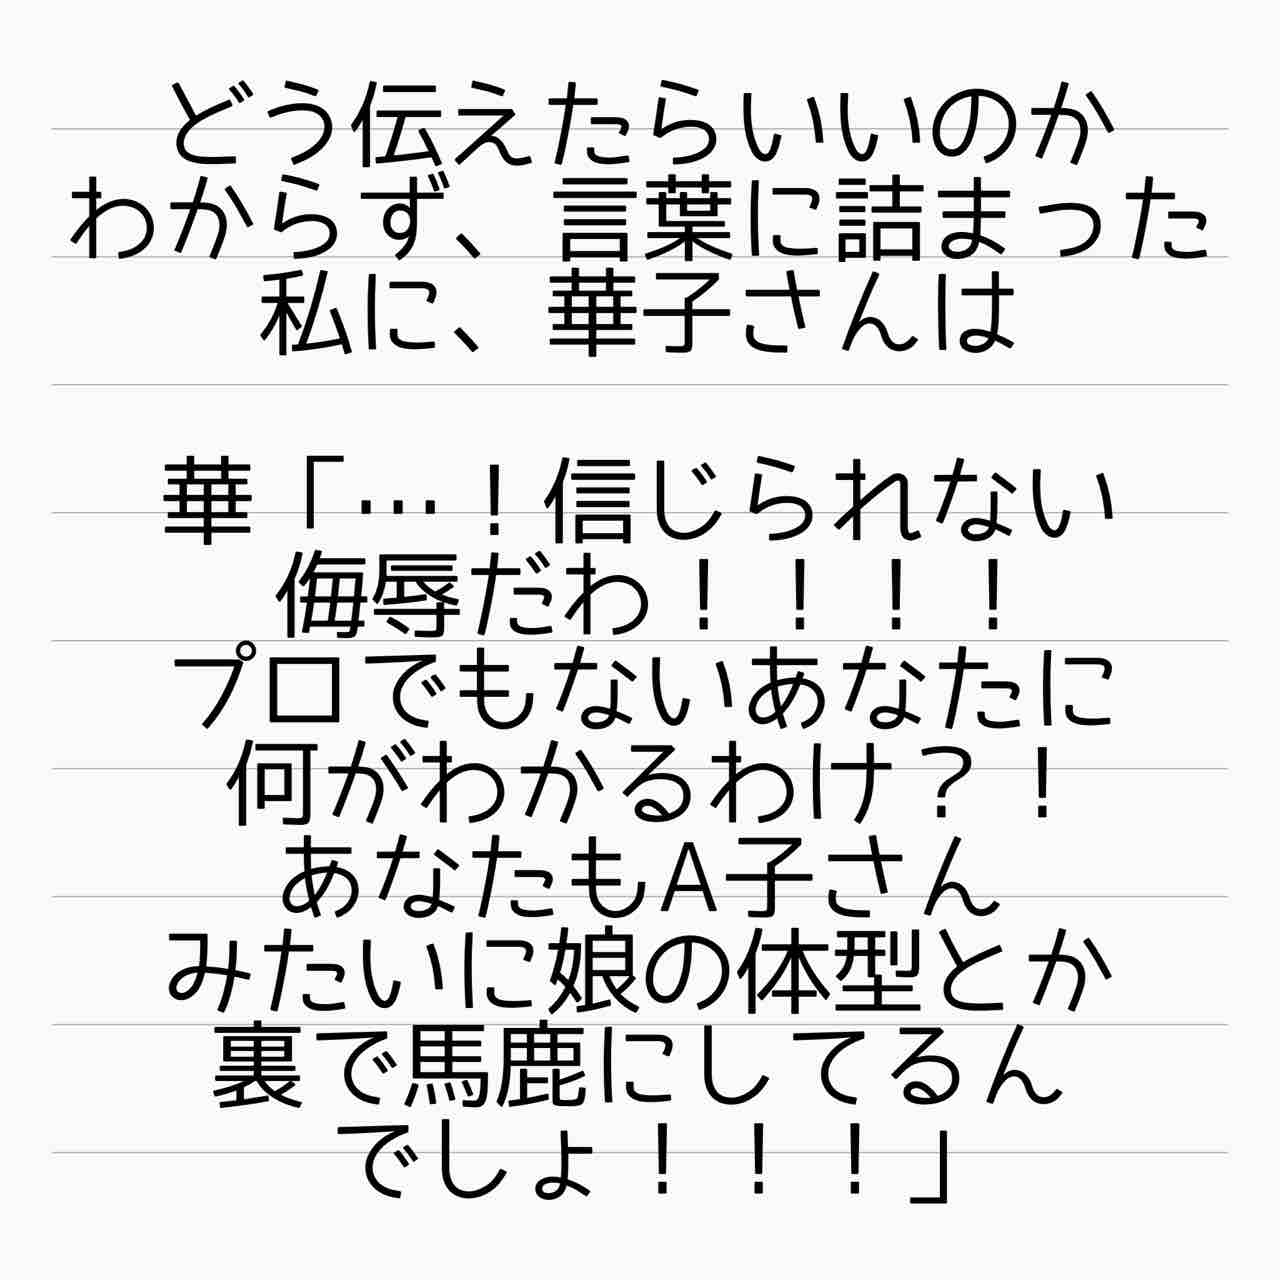 どう伝えたらいいのか
わからず、言葉に詰まった
私に、華子さんは
華「…！信じられない
侮辱だわ！！！！
プロでもないあなたに
何がわかるわけ？！
あなたもA子さん
みたいに娘の体型とか
裏で馬鹿にしてるん
でしょ！！！」